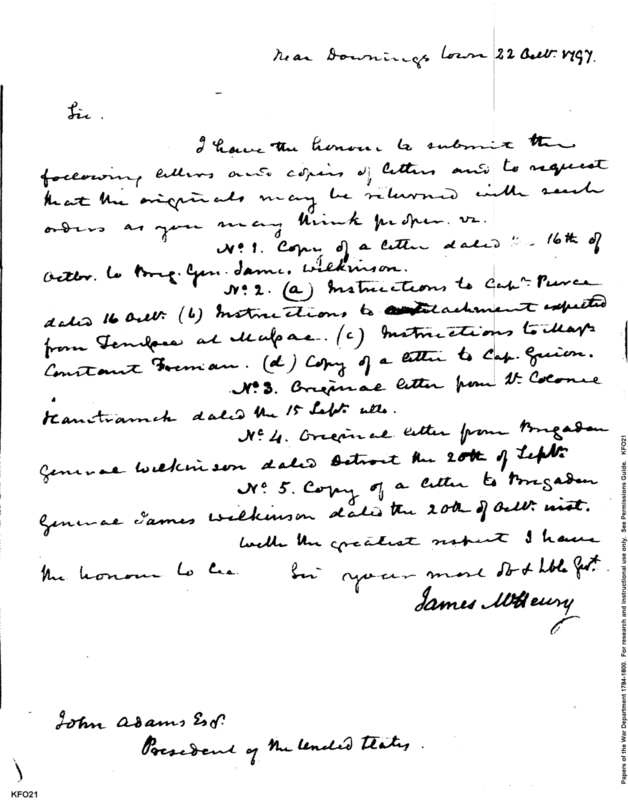 Near Downings town 22 Octbr. 1797.
Sir.
I have the honour to submit the
following letters and copies of letters and to request
that the originals may be returned with such
orders as you may think proper. vz.
No. 1. Copy of a letter dated 16th of
Octbr. to Brig. Gen. James Wilkinson.
No. 2. (a) Instructions to Capn. Pierce
dated 16 Octbr. (b) Instructions to detachment expected
from Tenessee at Massac. (c) Instructions to Majr.
Constant Freeman. (d) Copy of a letter to Cap. Guion.
No. 3. Original letter from Lt. Colonel
Hamtramck dated the 15 Sepbr. ulto.
No. 4. Original letter from Brigadier
General Wilkinson dated Detroit the 20th of Sepbr.
No. 5. Copy of a letter to Brigadier
General James Wilkinson dated the 20th of Octbr. inst.
With the greatest respect I have
the honour to be Sir your most ob & hble Srt.
James McHenry
John Adams Esqr.
President of the United States.
KFO21
Papers of the War Department 1784-1800. For research and instructional use only. See Permissions Guide. KFO21